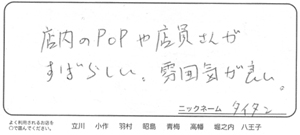 店内のPOPや店員さんが
すばらしい。雰囲気が良い。
ニックネーム タイタン
よく利用されるお店を
○で囲んでください。 立川 小作 羽村 昭島 青梅 高幡 堀之内 八王子